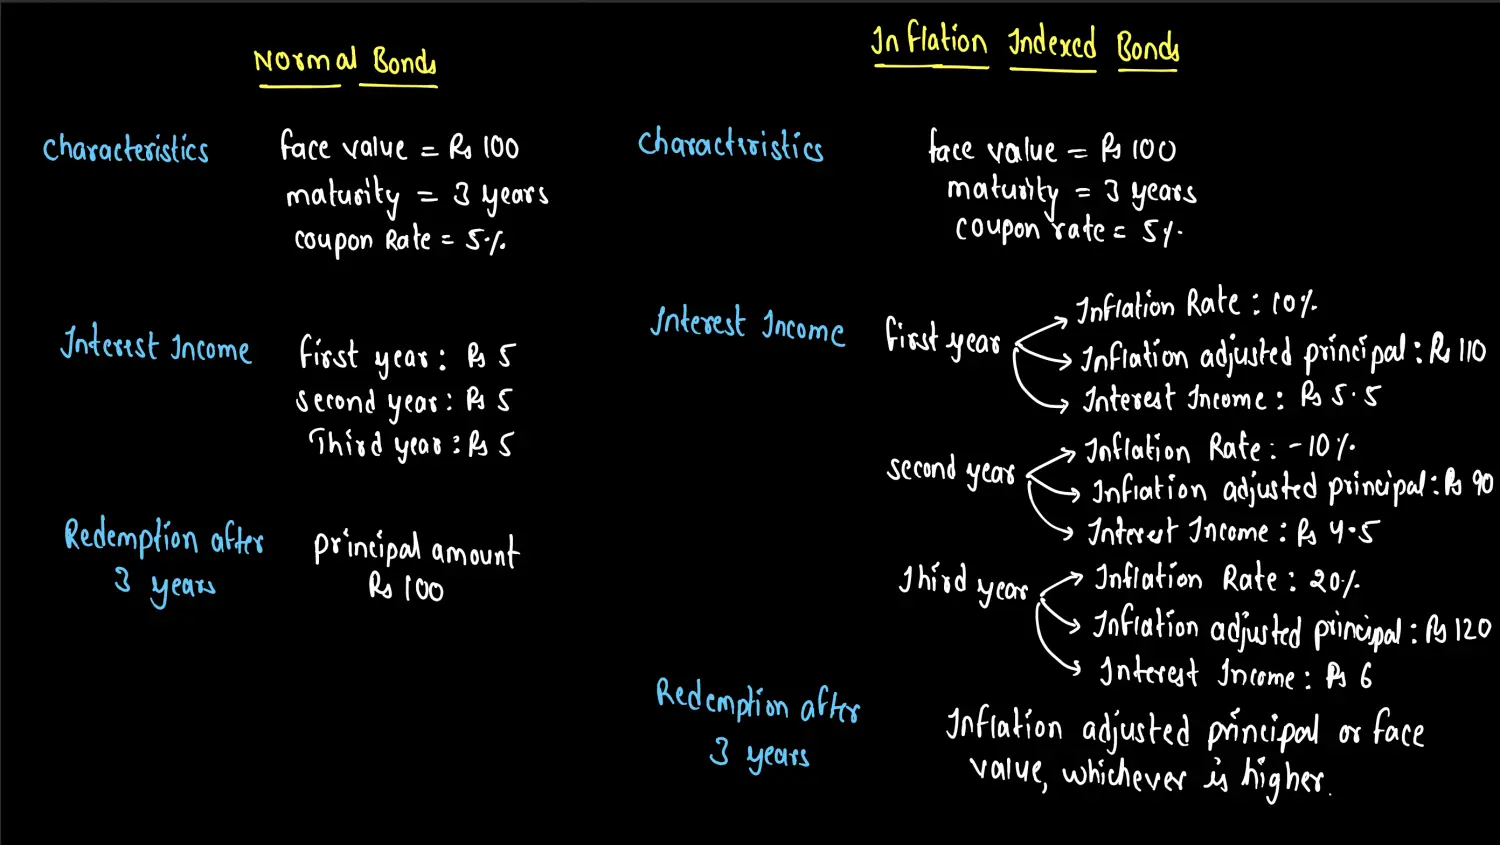 Normal Bonds
Characteristics
face value = Rs 100
maturity = 3 years
coupon Rate = 5%
Interest Income
first year: Rs 5
second year: Rs 5
Third year: Rs 5
Redemption after
3 years
principal amount
Rs 100
Inflation Indexed Bonds
Characteristics
face value = Rs 100
maturity = 3 years
coupon rate = 5%
Interest Income
first year
Inflation Rate: 10%
Inflation adjusted principal: Rs 110
Interest Income: Rs 5.5
second year
Inflation Rate: -10%
Inflation adjusted principal: Rs 90
Interest Income: Rs 4.5
Third year
Inflation Rate: 20%
Inflation adjusted principal: Rs 120
Interest Income: Rs 6
Redemption after
3 years
Inflation adjusted principal or face
value, whichever is higher.